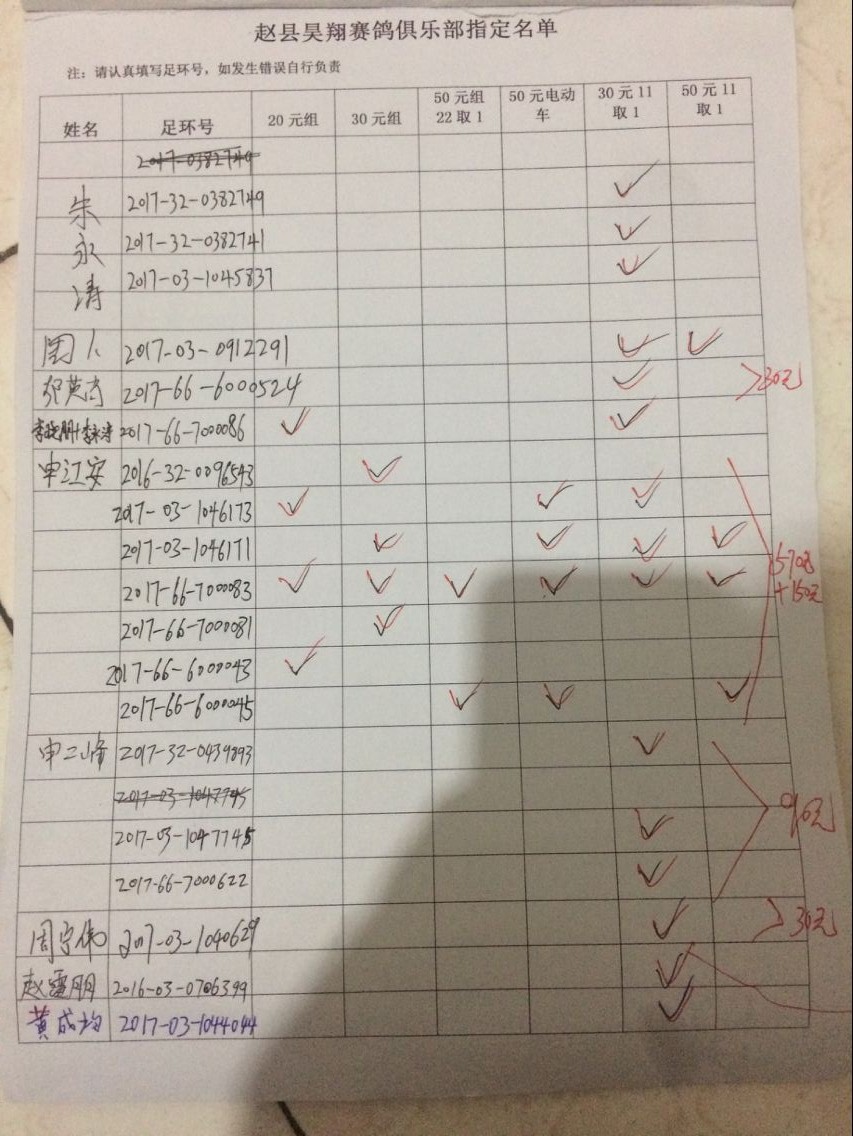 赵县昊翔赛鸽俱乐部指定名单
注：请认真填写足环号，如发生错误自行负责
姓名 足环号 20 元组 30 元组 50 元组 22 取 1 50 元电动车 30 元 11 取 1 50 元 11 取 1
2017-0382749
2017-32-0382749 ✓
朱永涛 2017-32-0382741 ✓
2017-03-1045837 ✓
2017-03-0912291 ✓ ✓
2017-66-6000524 ✓ >30元
2017-66-700086 ✓ ✓
申江安 2016-32-0096543 ✓
2017-03-1046173 ✓ ✓ ✓
2017-03-1046171 ✓ ✓ ✓ ✓
2017-66-700083 ✓ ✓ ✓ ✓ ✓ ✓ 570元+150元
2017-66-7000081 ✓
2017-66-6000043 ✓
2017-66-6000045 ✓ ✓ ✓
申二峰 2017-32-0439893 ✓
2017-03-1047745
2017-03-1047745 ✓ 90元
2017-66-7000622 ✓
周宇伟 2017-03-1040629 ✓ >30元
赵雪朋 2016-03-0706399 ✓
黄成均 2017-03-1044044 ✓